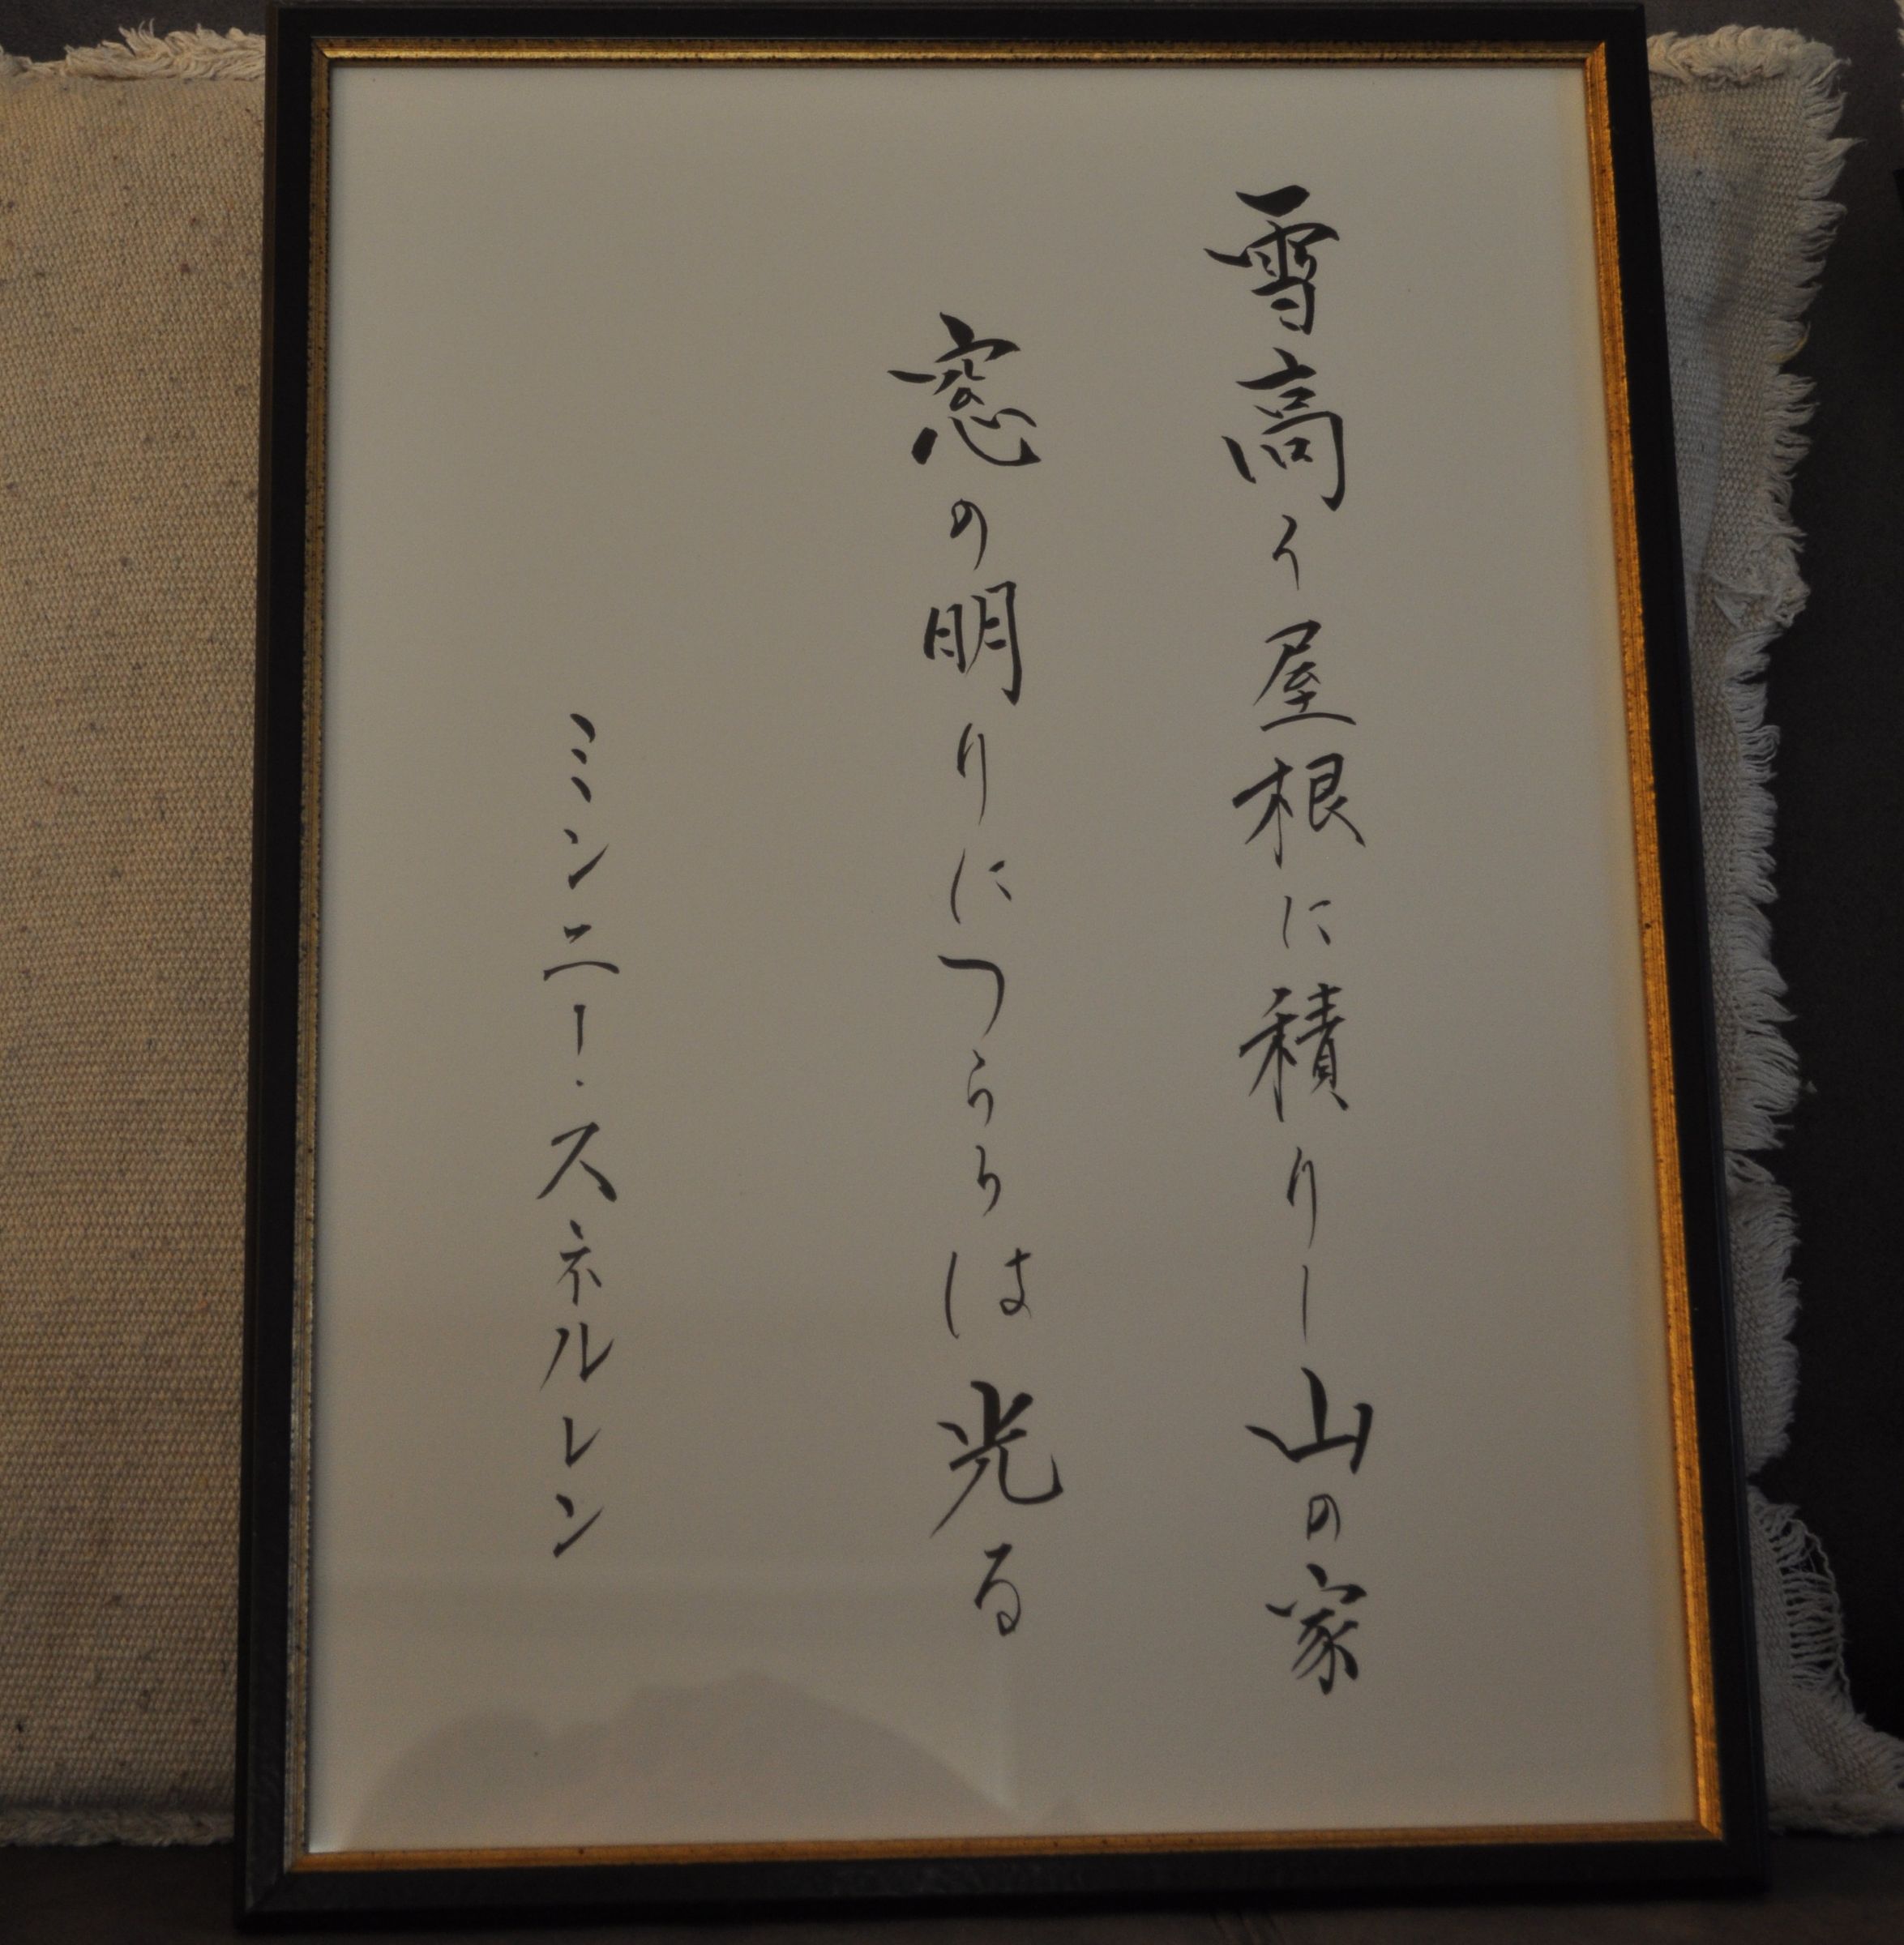 雪高く屋根に積りし山の家
窓の明りにつららは光る
ミンニー・スネルレン